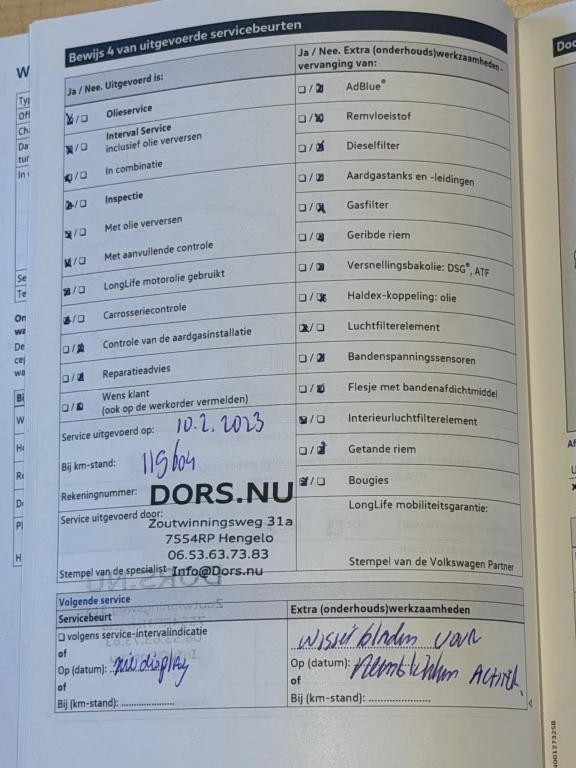 Bewijs 4 van uitgevoerde servicebeurten
Ja / Nee. Uitgevoerd is:
Olieservice
Interval Service
inclusief olie verversen
In combinatie
Inspectie
Met olie verversen
Met aanvullende controle
LongLife motorolie gebruikt
Carrosseriecontrole
Controle van de aardgasinstallatie
Reparatieadvies
Wens klant
(ook op de werkorder vermelden)
Service uitgevoerd op: 10.2.2023
Bij km-stand: 119604
Rekeningnummer:
Service uitgevoerd door:
DORS.NU
Zoutwinningsweg 31a
7554RP Hengelo
06.53.63.73.83
Info@Dors.nu
Stempel van de specialist
Ja / Nee. Extra (onderhouds)werkzaamheden -
vervanging van:
AdBlue®
Remvloeistof
Dieselfilter
Aardgastanks en -leidingen
Gasfilter
Geribde riem
Versnellingsbakolie: DSG®, ATF
Haldex-koppeling: olie
Luchtfilterelement
Bandenspanningssensoren
Flesje met bandenafdichtmiddel
Interieurluchtfilterelement
Getande riem
Bougies
LongLife mobiliteitsgarantie:
Stempel van de Volkswagen Partner
Volgende service
Servicebeurt
volgens service-intervalindicatie
of
Op (datum): zie display
of
Bij (km-stand): ....................
Extra (onderhouds)werkzaamheden
wisserbladen voor
Op (datum):
of
Bij (km-stand): ....................